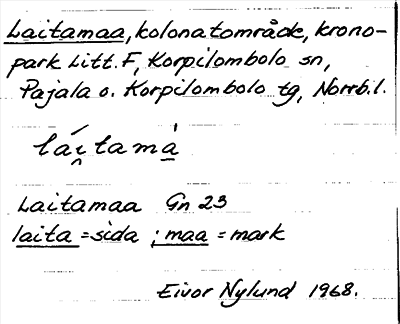 Laitamaa, kolonatområde, krono-
park Litt. F, Korpilombolo sn,
Pajala o. Korpilombolo tg, Norrb. l.
lái̯tamà̱
Laitamaa Gn 23
laita = sida ; maa = mark
Eivor Nylund 1968.